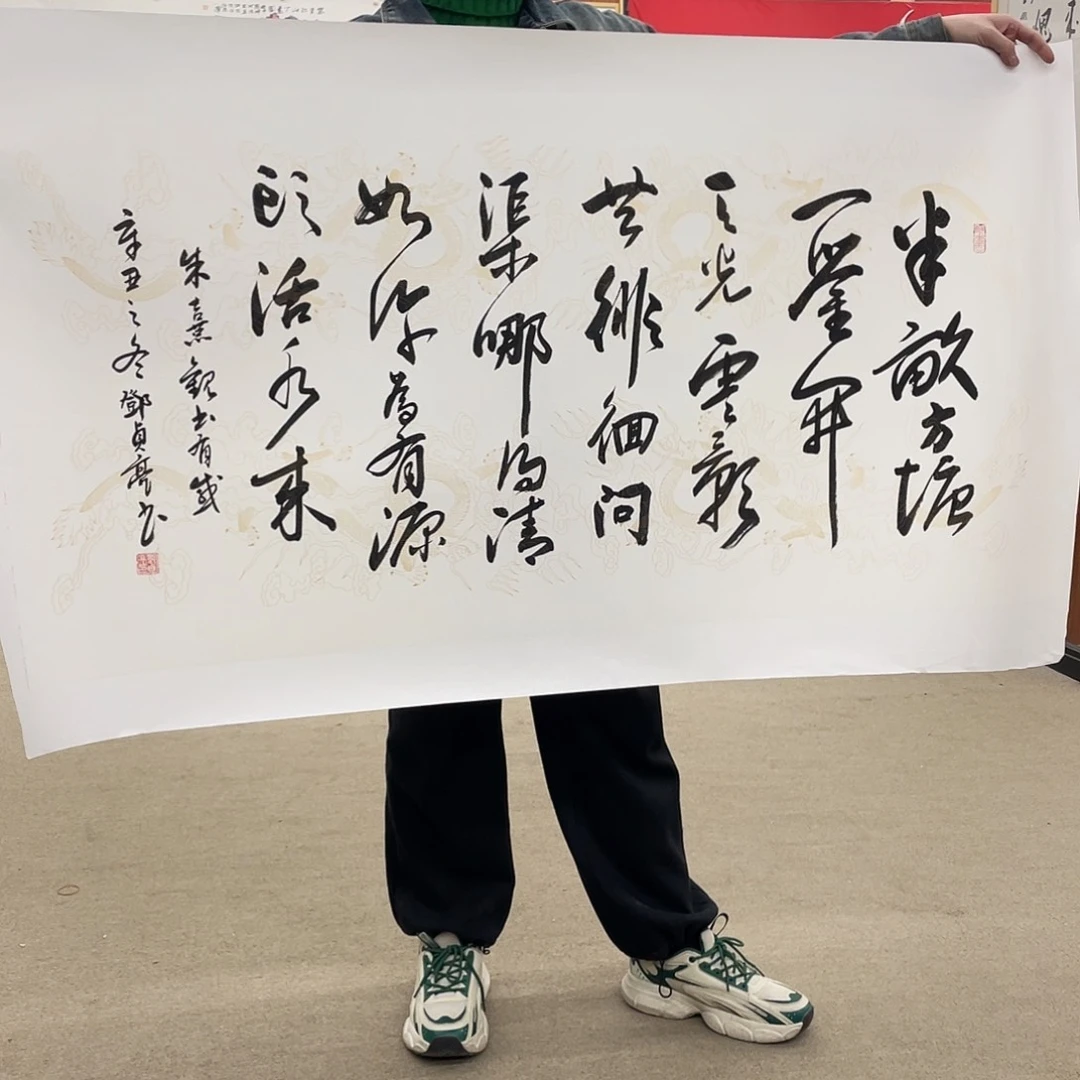 半畝方塘
一鑒開
天光雲影
共徘徊問
渠哪得清
如許為有源
頭活水來
朱熹觀書有感
辛丑之冬鄧貞亮書